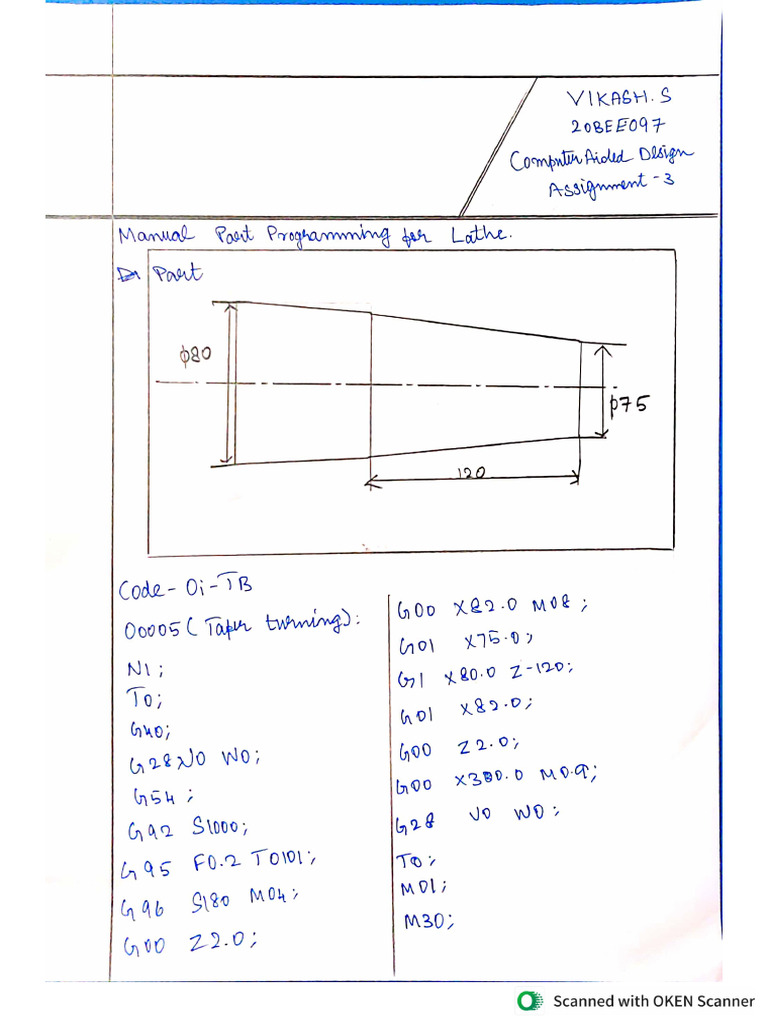 VIKASH.S
20BEE097
Computer Aided Design
Assignment-3
Manual Part Programming for Lathe.
Part
φ80
φ75
120
Code - Oi-TB
O0005 (Taper turning):
N1;
T0;
G40;
G28 U0 W0;
G54;
G92 S1000;
G95 F0.2 T0101;
G96 S180 M04;
G00 Z2.0;
G00 X82.0 M08;
G01 X75.0;
G1 X80.0 Z-120;
G01 X82.0;
G00 Z2.0;
G00 X300.0 M09;
G28 U0 W0;
T0;
M01;
M30;
Scanned with OKEN Scanner